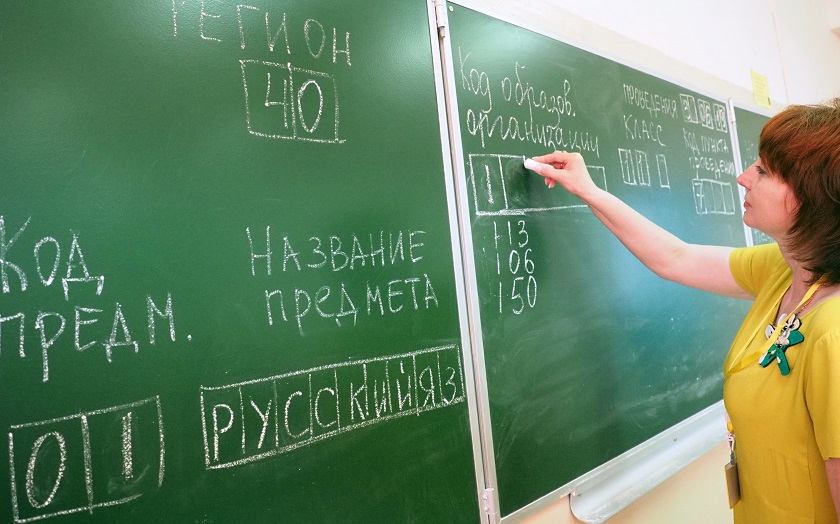 РЕГИОН
40
КОД
ПРЕДМ.
01
НАЗВАНИЕ
ПРЕДМЕТА
РУССКИЙ ЯЗ
Код образов.
организации
1
113
106
150
ПРОВЕДЕНИЯ
КЛАСС
11
КОД ПУНКТА
ПРОВЕДЕНИЯ